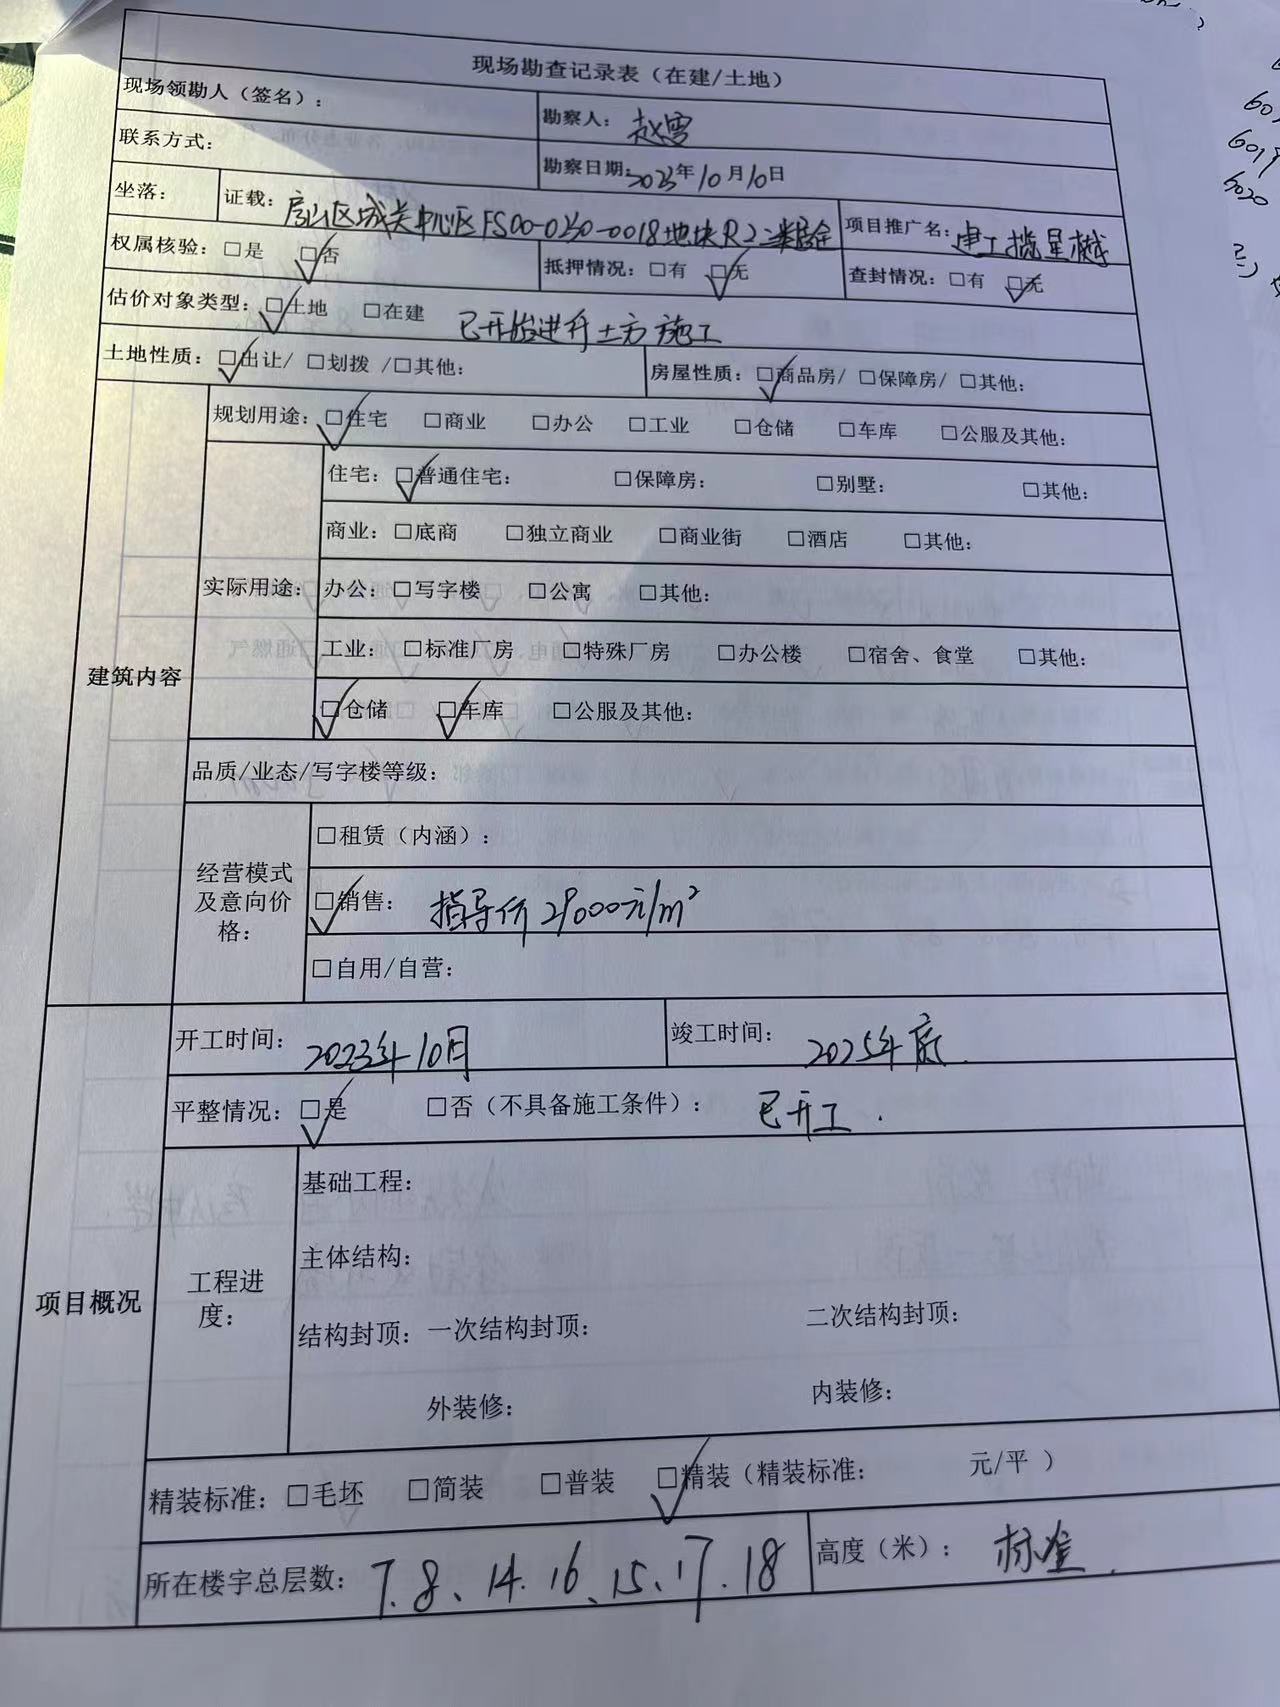 现场勘查记录表（在建/土地）
现场领勘人（签名）： 勘察人： 赵雪
联系方式： 勘察日期：2023年10月10日
坐落： 证载： 房山区城关中心区FS00-0230-0018地块R2二类居住 项目推广名：建工揽星樾
权属核验：□是 ☑否 抵押情况：□有 ☑无 查封情况：□有 ☑无
估价对象类型：☑土地 □在建 已开始进行土方施工
土地性质：☑出让/ □划拨 /□其他： 房屋性质：☑商品房/ □保障房/ □其他：
建筑内容
规划用途：☑住宅 □商业 □办公 □工业 □仓储 □车库 □公服及其他：
实际用途：
住宅：☑普通住宅： □保障房： □别墅： □其他：
商业：□底商 □独立商业 □商业街 □酒店 □其他：
办公：□写字楼 □公寓 □其他：
工业：□标准厂房 □特殊厂房 □办公楼 □宿舍、食堂 □其他：
☑仓储 ☑车库 □公服及其他：
品质/业态/写字楼等级：
经营模式
及意向价
格：
□租赁（内涵）：
☑销售： 指导价29000元/m²
□自用/自营：
项目概况
开工时间： 2023年10月 竣工时间： 2025年底
平整情况：☑是 □否（不具备施工条件）： 已开工.
工程进
度：
基础工程：
主体结构：
结构封顶：一次结构封顶： 二次结构封顶：
外装修： 内装修：
精装标准：□毛坯 □简装 □普装 ☑精装（精装标准： 元/平 ）
所在楼宇总层数： 7.8、14.16、15、17.18 高度（米）： 标准.
6019
6020